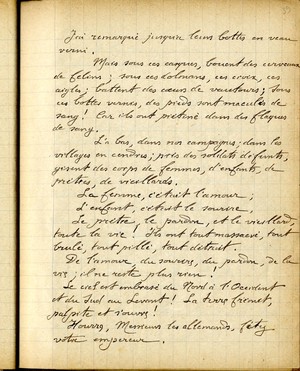 J'ai remarqué jusqu'à leurs bottes en veau
verni.
Mais sous ces casques, bouent des cerveaux
de félins ; sous ces dolmans, ces croix, ces
aigles ; battent des cœurs de vautours ; sous
ces bottes vernies, des pieds sont maculés de
sang ! Car ils ont piétiné dans des flaques
de sang.
Là bas, dans nos campagnes ; dans les
villages en cendres ; près des soldats défunts,
gisent des corps de femmes, d'enfants, de
prêtres, de vieillards.
La femme, c'était l'amour ;
L'enfant, c'était le sourire.
Le prêtre, le pardon, et le vieillard,
toute la vie ! Ils ont tout massacré, tout
brulé, tout pillé, tout détruit.
De l'amour, du sourire, du pardon, de la
vie ; il ne reste plus rien !
Le ciel est embrasé du Nord à l'Occident
et du Sud au Levant ! La terre frémet,
palpite et s'ouvre !
Hourra, Messieurs les allemands, fêtez
votre empereur.